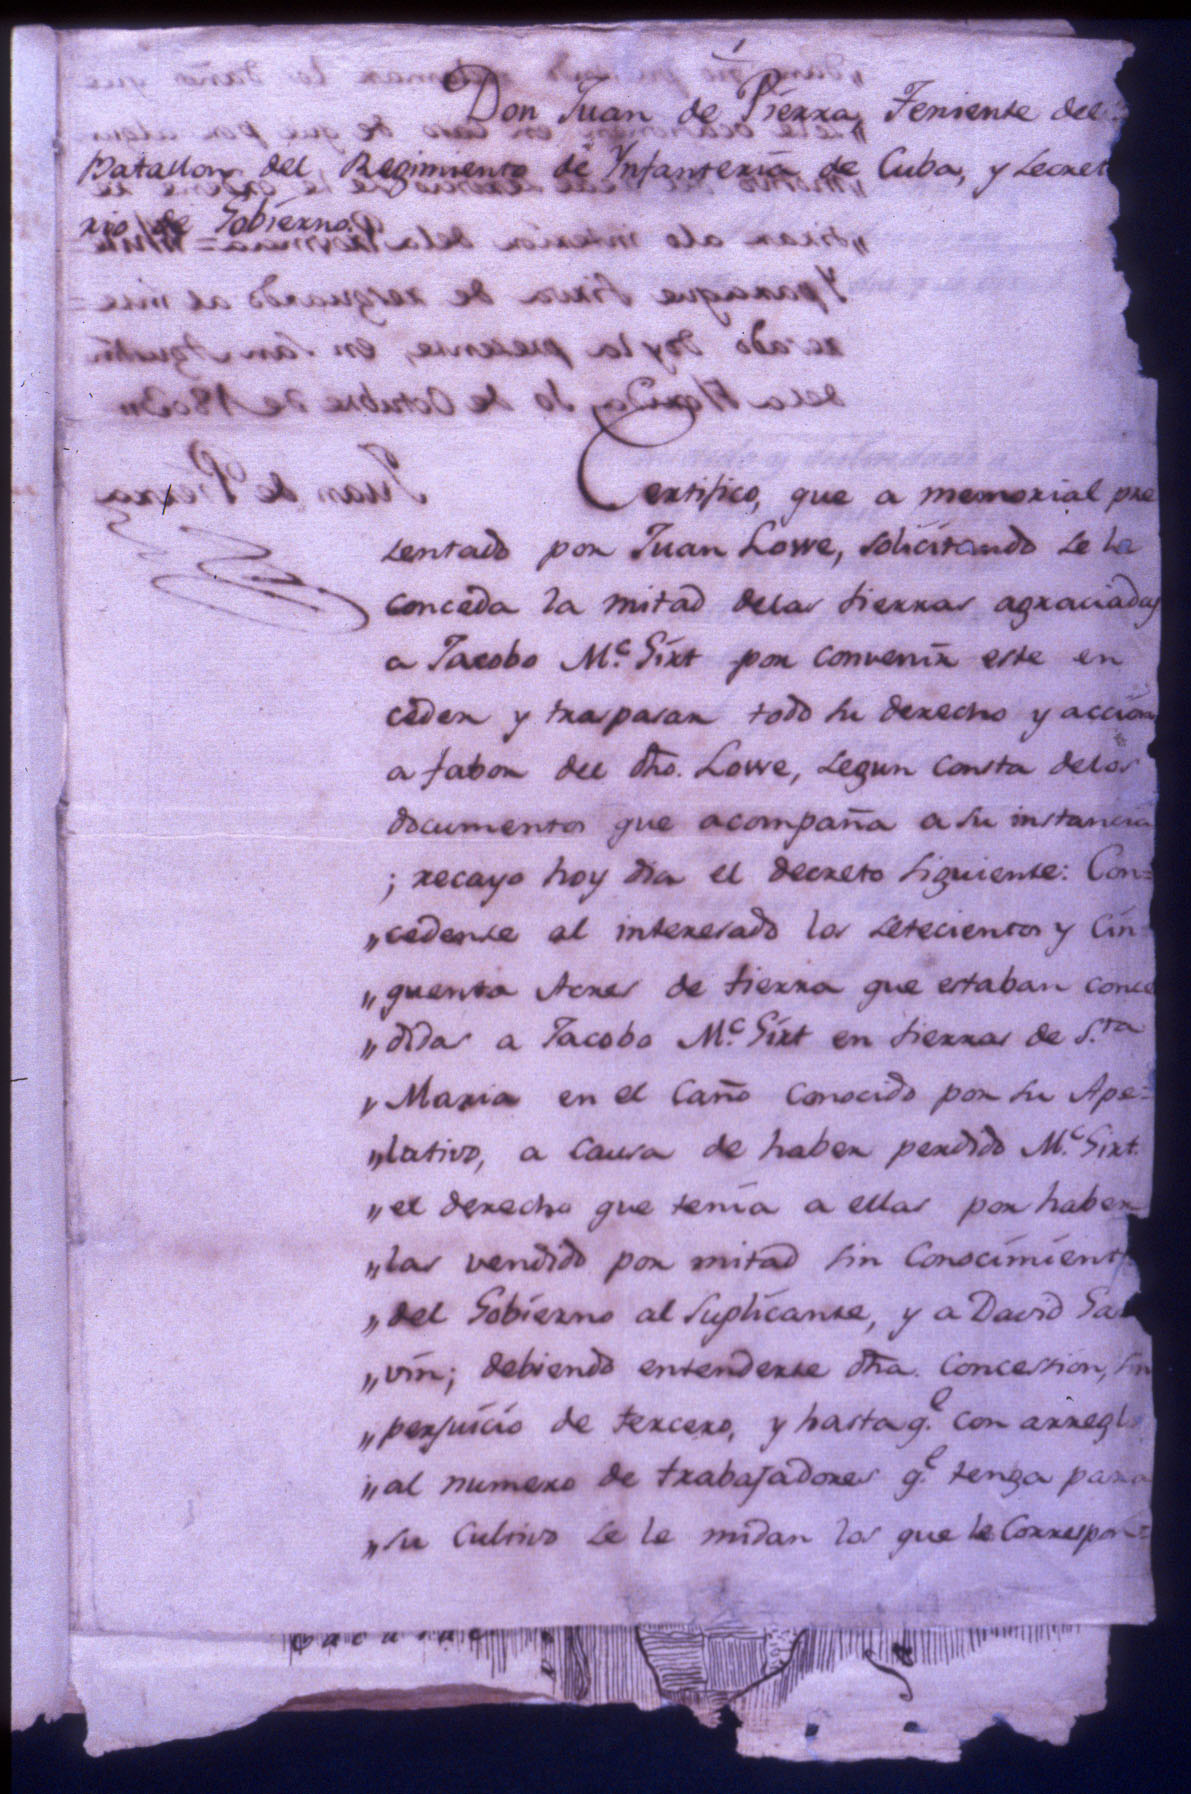 Don Juan de Pierra, Teniente del
Batallon del Regimiento de Ynfanteria de Cuba, y Secret
rio de Gobierno.
Certifico, que a memorial pre
sentado por Juan Lowe, solicitando se le
conceda la mitad delas tierras agraciadas
a Jacobo M.c Girt por convenir este en
ceder y traspasar todo su derecho y accion
a fabor del dho. Lowe, segun consta delos
documentos que acompaña a su instancia
; recayo hoy dia el decreto siguiente: Con=
„cedense al interesado los setecientos y Cin
„quenta Acres de tierra que estaban conce
„didas a Jacobo M.c Girt en tierras de S.ta
„Maria en el Caño conocido por su Ape=
„lativo, a causa de haber perdido M.c Girt.
„el derecho que tenia a ellas por haber
„las vendido por mitad sin conocimiento
„del Gobierno al suplicante, y a David Ga
„vin; debiendo entenderse dha. Concession, sin
„perjuicio de tercero, y hasta q.e con arreglo
„al numero de trabajadores q.e tenga para
„su Cultivo se le midan los que le Correspon=